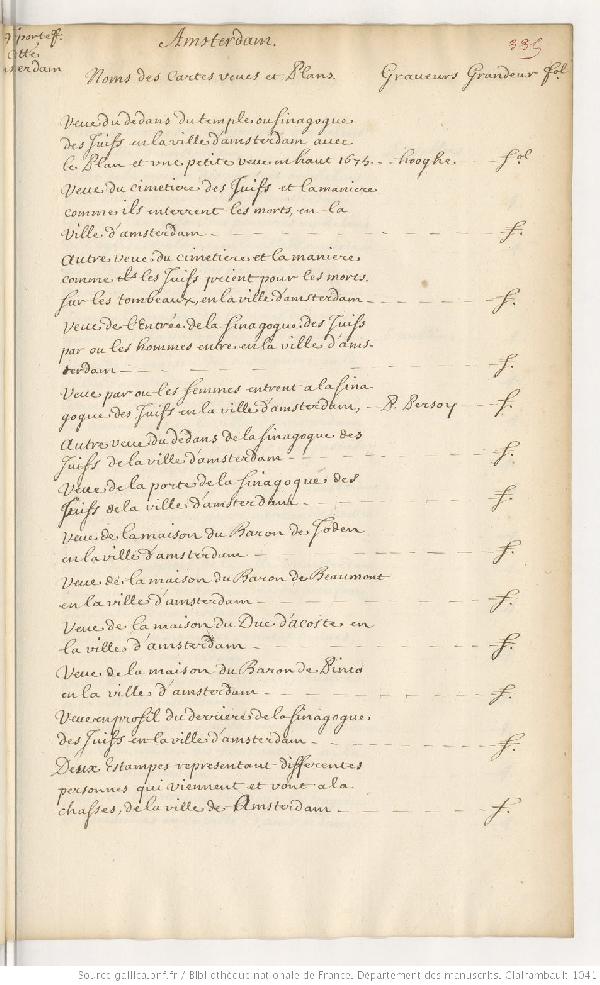 portef.
Amsterdam.
335
Noms des Cartes veues et Plans. Graveurs Grandeur fol
Veue du dedans du temple ou sinagogue
des Juifs en la ville d'amsterdam avec
le Plan et une petite veue en haut 1675. - - hooghe. - fol
Veue du cimetiere des Juifs et la maniere
comme ils interrent les morts, en la
ville d'amsterdam - f.
Autre veue du cimetiere et la maniere
comme les Juifs prient pour les morts.
sur les tombeaux, en la ville d'amsterdam - f.
Veue de l'Entrée de la sinagogue des Juifs
par ou les hommes entre en la ville d'ams-
terdam - f.
Veue par ou les femmes entrent a la sina-
gogue des Juifs en la ville d'amsterdam, - P. Persoy - f.
Autre veue du dedans de la sinagogue des
Juifs de la ville d'amsterdam - f.
Veue de la porte de la sinagogue des
Juifs de la ville d'amsterdam - f.
Veue de la maison du Baron de Joden
en la ville d'amsterdam - f.
Veue de la maison du Baron de Beaumont
en la ville d'amsterdam - f.
Veue de la maison du Duc d'acoste en
la ville d'amsterdam - f.
Veue de la maison du Baron de Pinto
en la ville d'amsterdam - f.
Veue en profil du derriere de la sinagogue
des Juifs en la ville d'amsterdam - f.
Deux Estampes representant differentes
personnes qui viennent et vont a la
chasses, de la ville de Amsterdam - f.
Source gallica.bnf.fr / Bibliothèque nationale de France. Département des manuscrits. Clairambault 1041